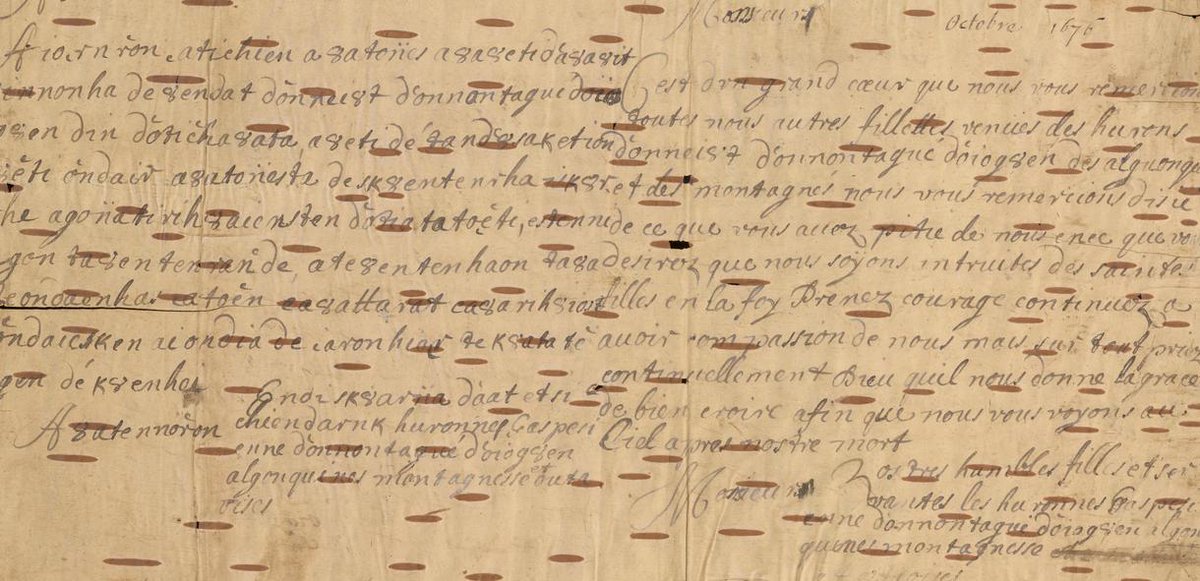 Monsieur
Octobre 1676
A io.rnrôn .atichien a8atories a8a8etid'a8a8it
innonha de 8endat d'onnei8t d'onnontagué d'oio
8en din d'otichа8ata a8eti dé tand8saketion
iêti ondair a8atoriesta desk8entenrha
he agoriatirih8aiensten d'oriatatoêti, estennide
gon ta8entenran'de, ate8entenhaon ta8a
eondaenhas eatoên ea8attarat ea8arih8iost
ondaiesken aiondiá de iaronhiae te k8atatê
gen dé k8enhei
A8atennorôn
Endi sk8ariia daat etsi
chiendaruk huronnes Gaspesi
enne d'onnontagué d'oiog8en
algonquines montagnesse et outa
oises
C'est d'un grand cœur que nous vous remercions
toutes nous autres fillettes venues des hurons
d'onnei8t d'onnontagué d'oiog8en des algonqu
et des montagnés nous vous remercions disie
de ce que vous avez pitie de nous enec que vo
desirez que nous soyons intruites des saintes
filles en la foy Prenez courage continuez a
avoir compassion de nous mais sur tout priez
continuellement Dieu quil nous donne la grace
de bien croire afin que nous vous voyons au
Ciel apres nostre mort
Monsieur
Vos tres humbles filles et ser
vantes les huronnes Gaspesi
enne d'onnontagué d'oiog8en algon
quines montagnesse